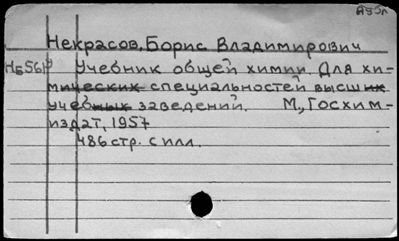 Некрасов, Борис Владимирович
Учебник общей химии. Для хи-
мических специальностей высших
учебных заведений. М., Госхим-
издат, 1957
486 стр. с илл.